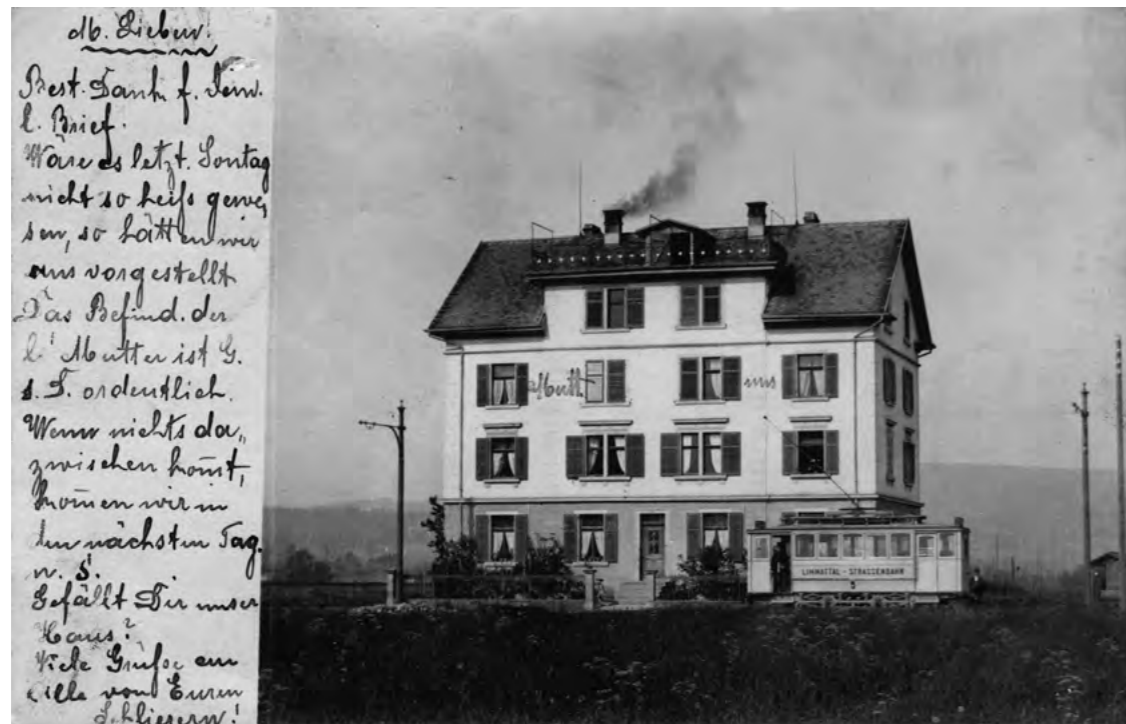 M. Lieben!
Best. Dank f. Dein.
l. Brief.
Wäre es letzt. Sontag
nicht so heiß gewe,
sen, so hätten wir
uns vorgestellt
Das Befind. der
l. Mutter ist G.
s. D. ordentlich.
Wenn nichts da,,
zwischen kom̅t,
kom̅en wir in
den nächsten Tag.
n. S.
Gefällt Dir unser
Haus?
Viele Grüße an
alle von Euren
Schlierern!
Mutt.
uns
LIMMATTAL - STRASSENBAHN
5